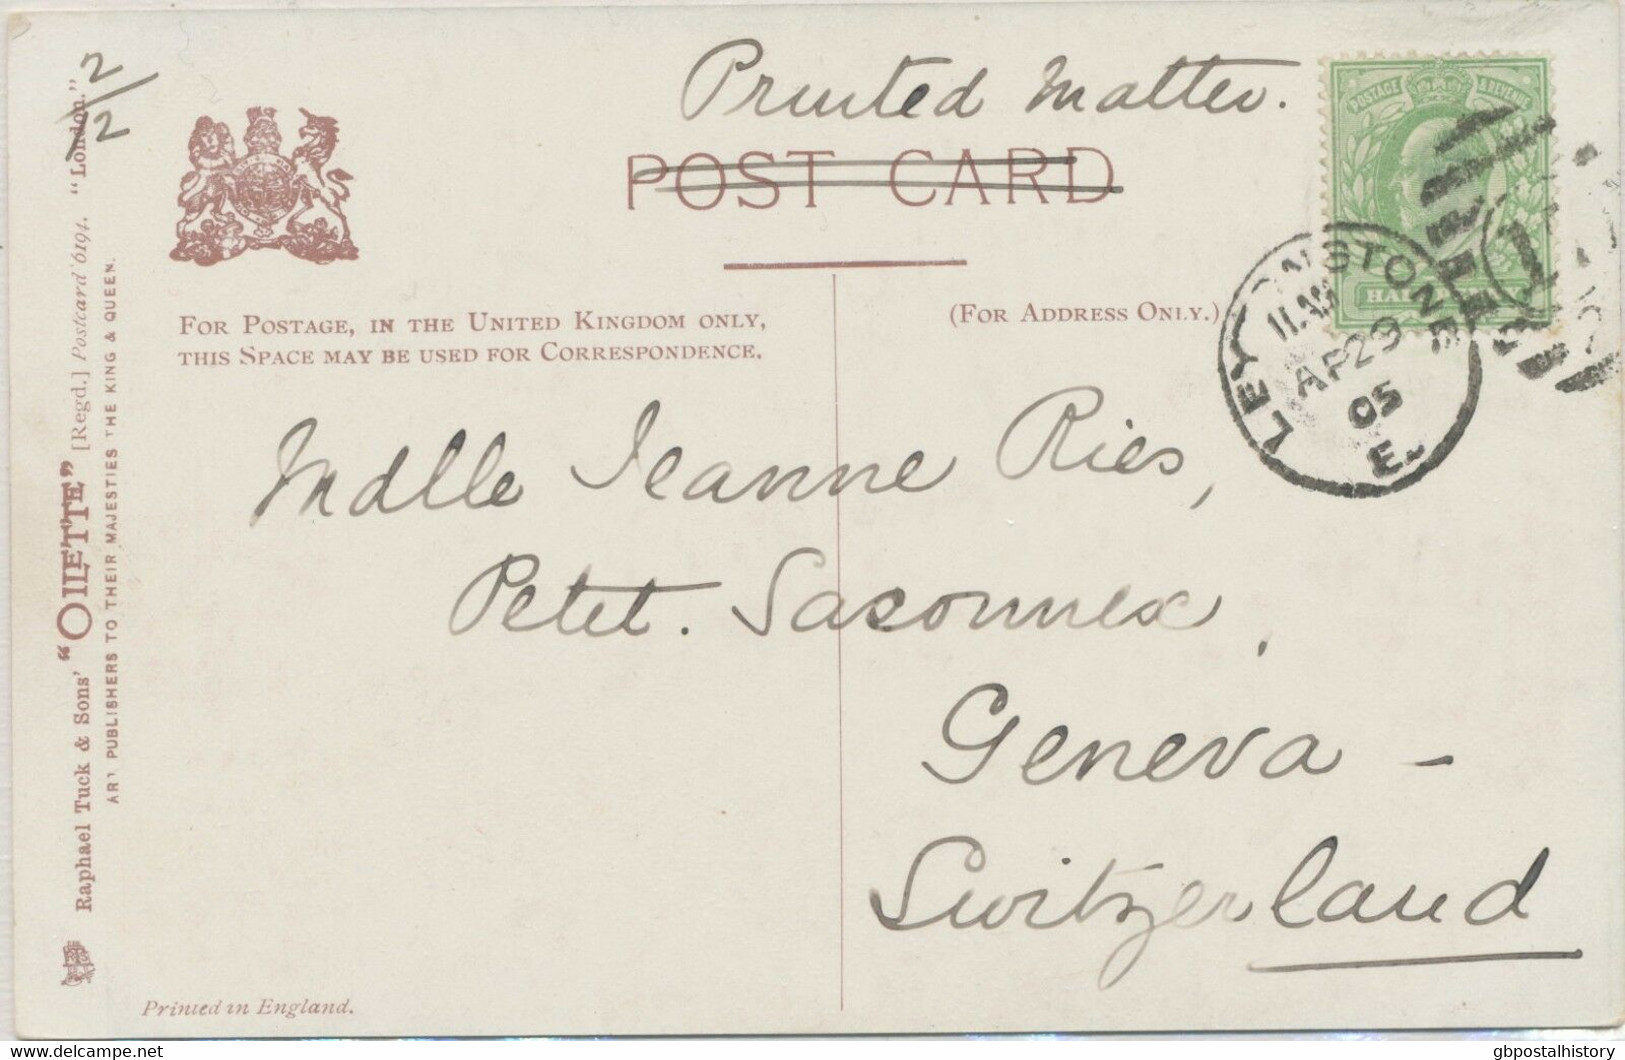 2/2
Printed Matter.
POST CARD
POSTAGE & REVENUE
FOR POSTAGE, IN THE UNITED KINGDOM ONLY,
THIS SPACE MAY BE USED FOR CORRESPONDENCE.
(FOR ADDRESS ONLY.)
LEYTONSTONE
11 AM
AP 29
05
E.
Mdlle Jeanne Ries,
Petit. Saconnex,
Geneva -
Switzerland
Raphael Tuck & Sons' "OILETTE" [Regd.] Postcard 6194. "London."
ART PUBLISHERS TO THEIR MAJESTIES THE KING & QUEEN.
Printed in England.
delcampe.net
gbpostalhistory